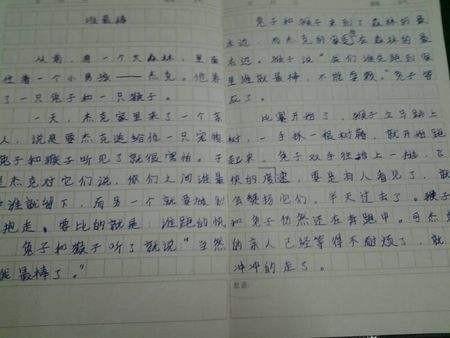 谁最棒
从前，有一个大森林，里面
住着一个小男孩——杰克。他养
了一只兔子和一只猴子。
一天，杰克家里来了一个客
人，说是要杰克送给他一只宠物
兔子和猴子听见了就很害怕。于
是杰克对它们说，你们之间谁最
棒谁就留下，而另一个就要被别
抱走。要比的就是：谁跑的快
兔子和猴子听了就说“当然
我最棒了。”
兔子和猴子来到了森林的最
远，杰克的家在森林的最
远。猴子说“我们谁先跑到家
里谁就最棒，不能拿鞋。”兔子答
应了。
比赛开始了，猴子立马跳上
树，一手抓一根树藤，就开始跑
起来，兔子双手往背上一拖，飞
快的，要是有人看见了，就
会赞扬它们，半天过去了。猴子
和兔子仍然还在奔跑中。可杰克
的亲人已经等得不耐烦了，就
冲冲的走了。